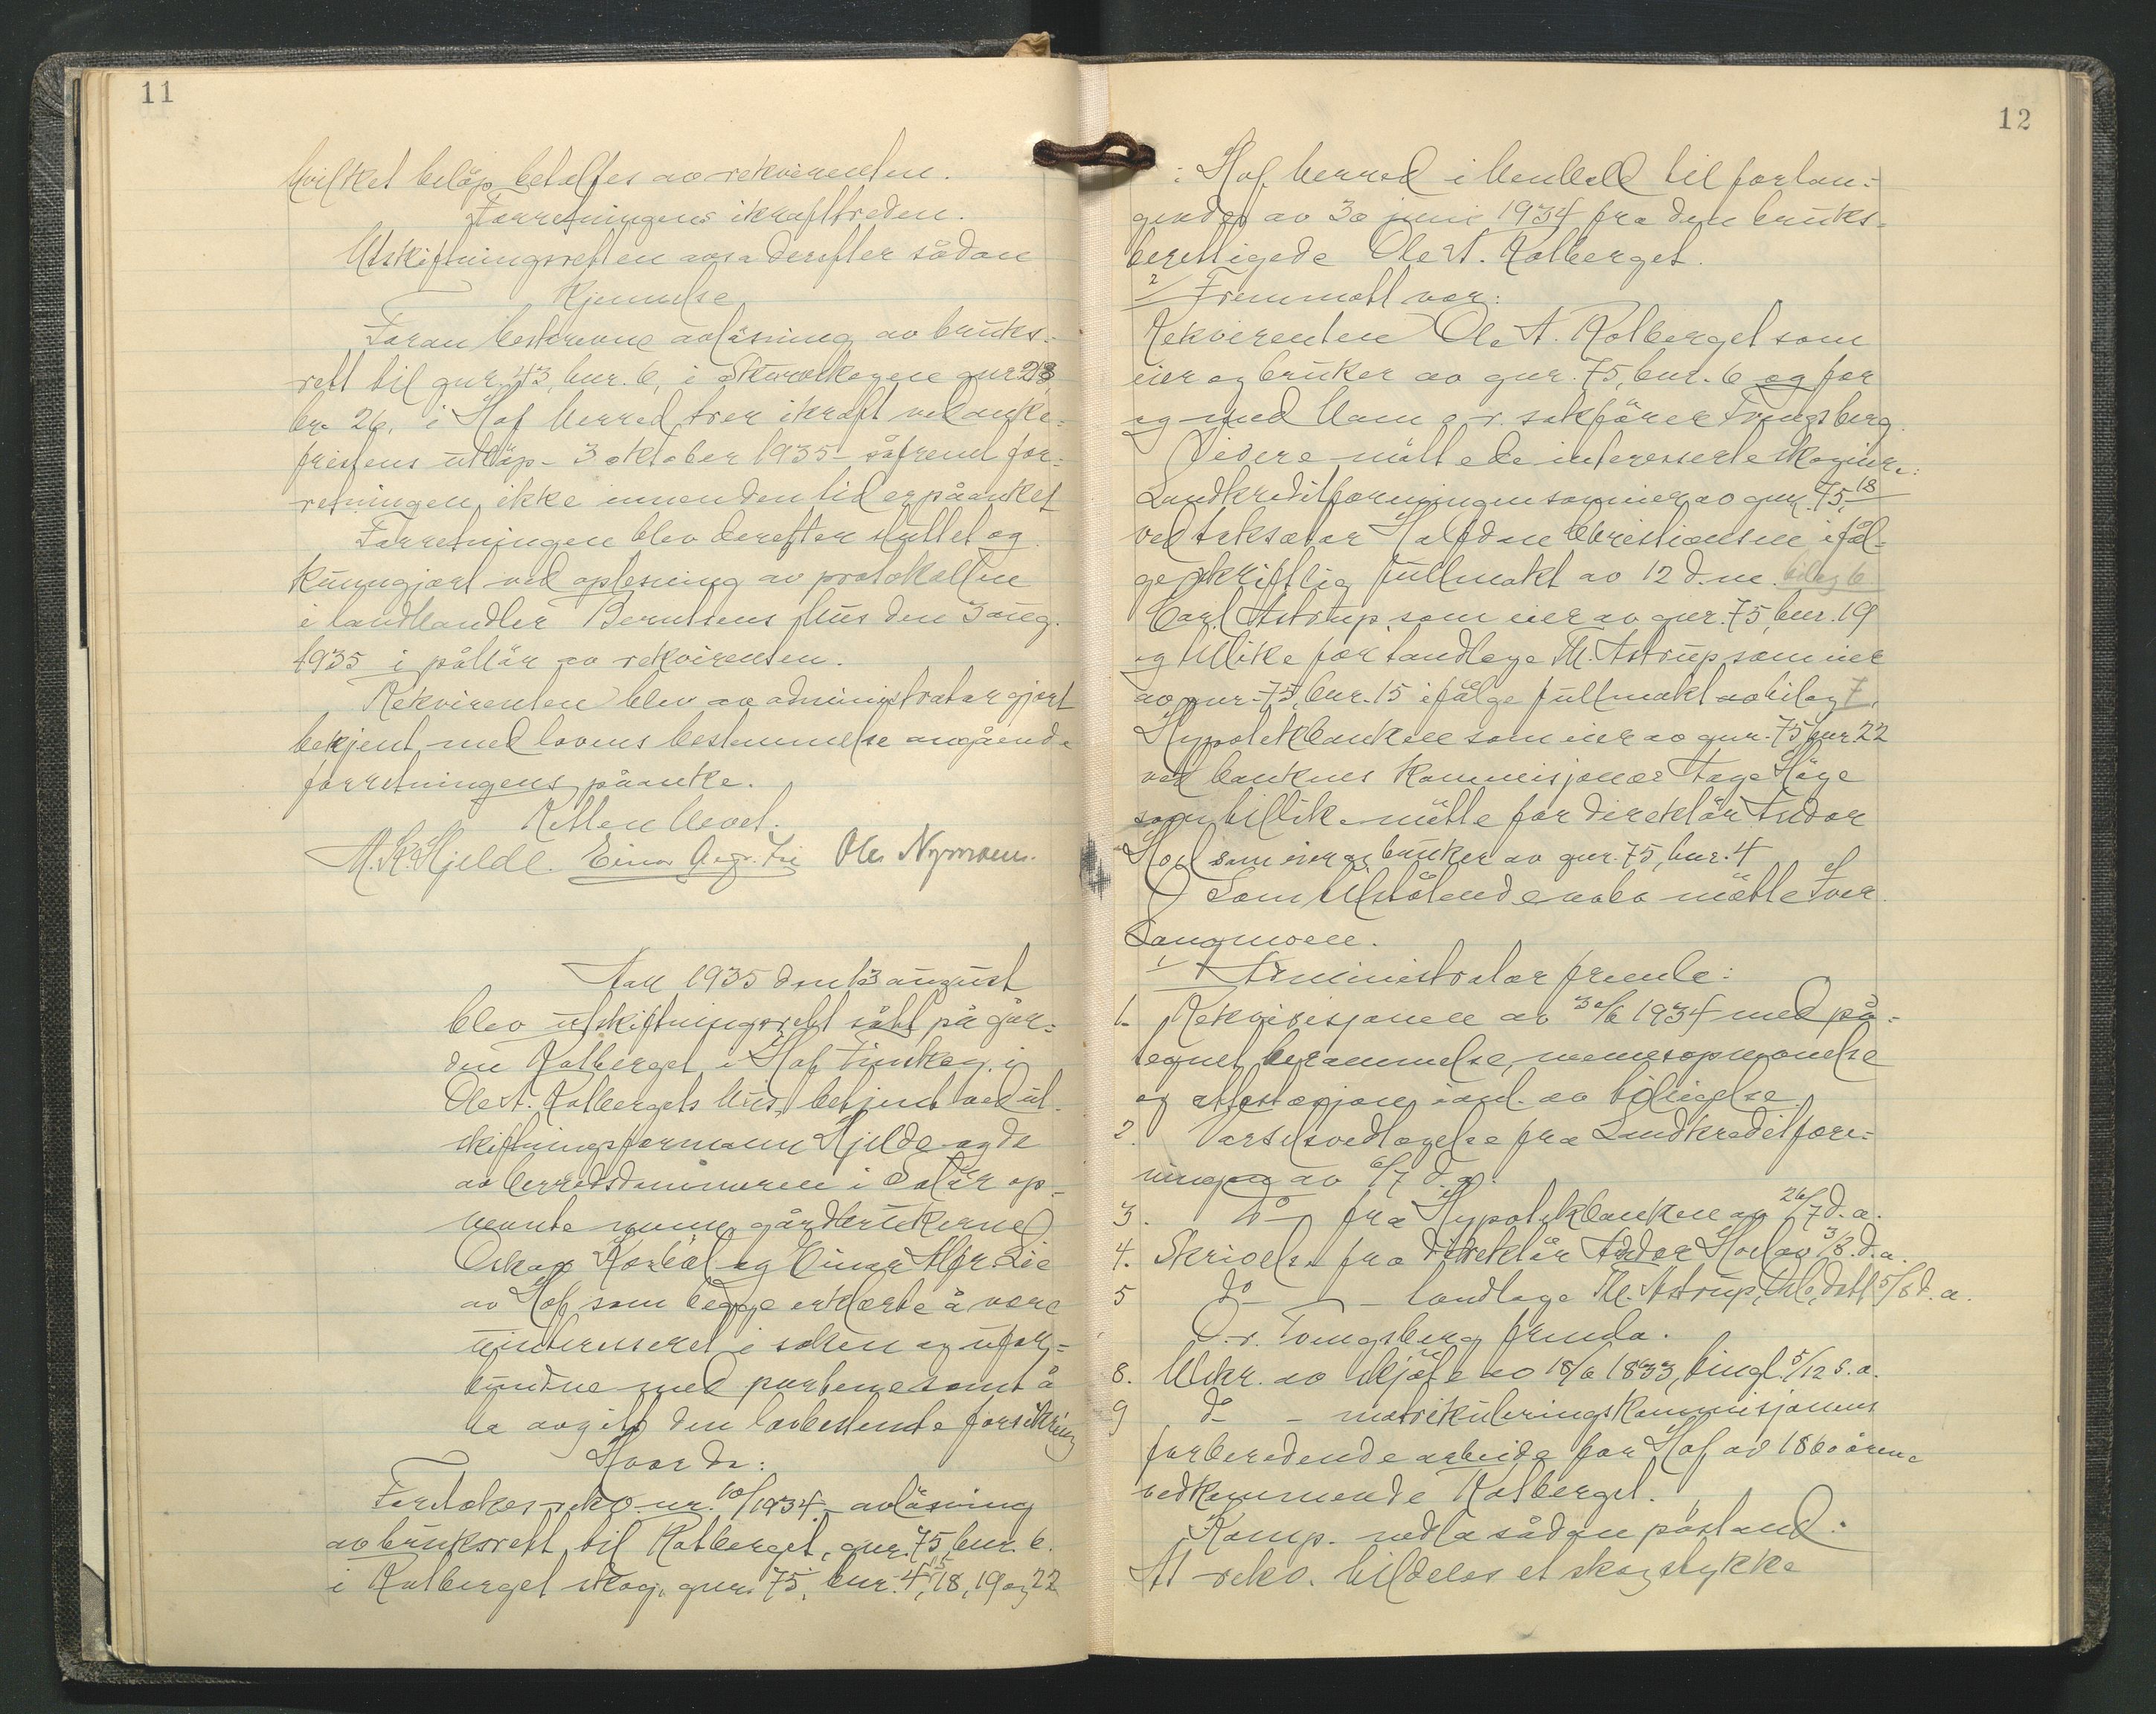 11
hvilket beløp betaltes av rekvirenten.
Forretningens ikrafttreden.
Utskiftningsretten avsa derefter sådan
Kjennelse
Foran beskrevne avløsning av bruks-
rett til gnr. 43, bnr. 6, i gnr 28
br. 26, i Hof herred trer ikraft ved anke-
fristens utløp - 3 oktober 1935 - såfremt for-
retningen ikke innen den tid er påanket
Forretningen blev derefter sluttet og
kunngjort ved oplesning av protokollen
i landhandler Berntsens hus den 3 aug.
1935 i påhør av rekvirenten.
Rekvirenten blev av administrator gjort
bekjent med lovens bestemmelse angående
forretningens påanke.
Retten hevet.
M. K. Hjelde. Einar Lie Ole Nymoen.
Aar 1935 den 13 august
blev utskiftningsrett satt på går-
den Kolberget i Hof Finskog, i
Ole A. Kolbergets hus, betjent ved ut-
skiftningsformann Hjelde og de
av herredsdommeren i Solør op-
nevnte menn gårdbrukerne
Oskar og Einar Alfr. Lie
av Hof som begge erklærte å være
uinteresseret i saken og ufor-
bundne med partene samt å
ha avgitt den lovbestemte forsikring
Hvorda:
Foretokes rekv. nr. 10/1934 - avløsning
av bruksrett til Kolberget, gnr. 75, bnr. 6.
i Kolberget skog, gnr. 75, bnr. 4, 15, 18, 19 og 22
12
i Hof herred i henhold til forlan-
gende av 30 juni 1934 fra den bruks-
berettigede Ole A. Kolberget.
2/ Fremmøtt var:
Rekvirenten Ole A. Kolberget som
eier og bruker av gnr. 75, bnr. 6 og for
og med ham o.r. sakfører Tongsberg.
Videre møtte de interesserte skogeiere:
Landkreditforeningen som eier av gnr. 75, 18
ved taksator Halfdan Christiansen iføl-
ge skriftlig fullmakt av 12 d.m. bilag 6
Carl Astrup som eier av gnr. 75, bnr. 19
og tillike for tandlege Th. Astrup som eier
av gnr. 75, bnr. 15 ifølge fullmakt av bilag 7,
Hypotekbanken som eier av gnr. 75 bnr 22
ved bankens kommisjonær Aage Høye
som tillike møtte for direktør Andor
Hoel som eier og bruker av gnr. 75, bnr. 4
Som tilstøtende nabo møtte Iver
Langmoen.
1/ Administrator fremla:
1. Rekvisisjonen av 30/6 1934 med på-
tegnet berammelse, mennsopnevnelse
og attestasjon
2. Varselsvedtagelse fra Landkreditfore-
ningen av 6/7 d.a.
3. Do - fra Hypotekbanken av 26/7 d.a.
4. Skrivelse fra direktør Andor Hoel av 3/8. d.a.
5 do - - tandlege Th. Astrup, Oslo, datt 5/8 d.a.
O.r. Tongsberg fremla.
8. Utskr. av skjøte av 18/6 1833, tingl. 5/12 s.a.
9 do - matrikuleringskommisjonens
forberedende arbeide for Hof av 1860 årene
vedkommende Kolberget.
Komp. nedla sådan påstand:
At rekv. tildeles et skogstykke